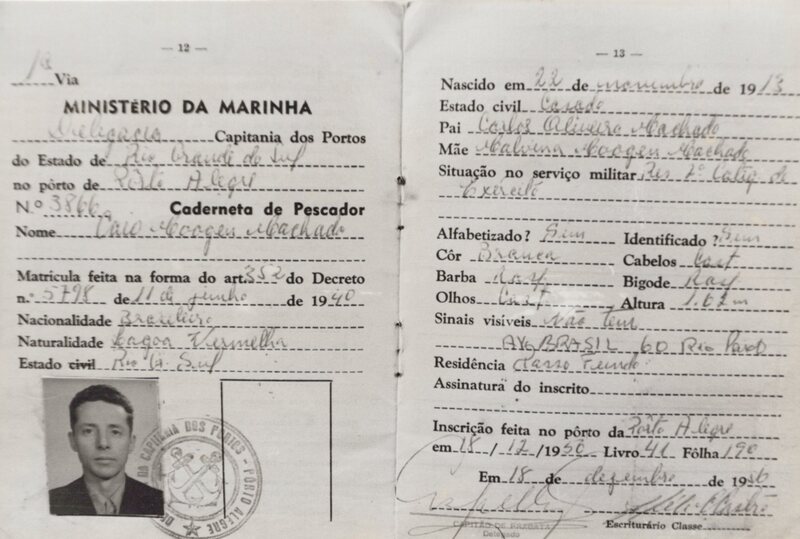 — 12 —
1ª Via
MINISTÉRIO DA MARINHA
Delegacia Capitania dos Portos
do Estado de Rio Grande do Sul
no pôrto de Pôrto Alegre
N.º 3866 Caderneta de Pescador
Nome Caio Moogen Machado
Matricula feita na forma do art. 352 do Decreto
n.º 5798 de 11 de junho de 1940
Nacionalidade Brasileiro
Naturalidade Lagoa Vermelha
Estado civil Rio G. Sul
DA CAPITANIA DOS PORTOS - PÔRTO ALEGRE
— 13 —
Nascido em 22 de novembro de 1913
Estado civil Casado
Pai Carlos Oliveiro Machado
Mãe Malvina Moogen Machado
Situação no serviço militar Res 2ª Categ. do
Exercito
Alfabetizado? Sim Identificado? Sim
Côr Branca Cabelos Cast
Barba Rasp Bigode Rasp
Olhos Cast Altura 1.62m
Sinais visíveis Não tem
AV. BRASIL 60 Rio Pardo
Residência Passo Fundo
Assinatura do inscrito
Inscrição feita no pôrto da Pôrto Alegre
em 18/12/1956 Livro 41 Fôlha 190
Em 18 de dezembro de 1956
CAPITÃO DE FRAGATA
Delegado
Escriturário Classe